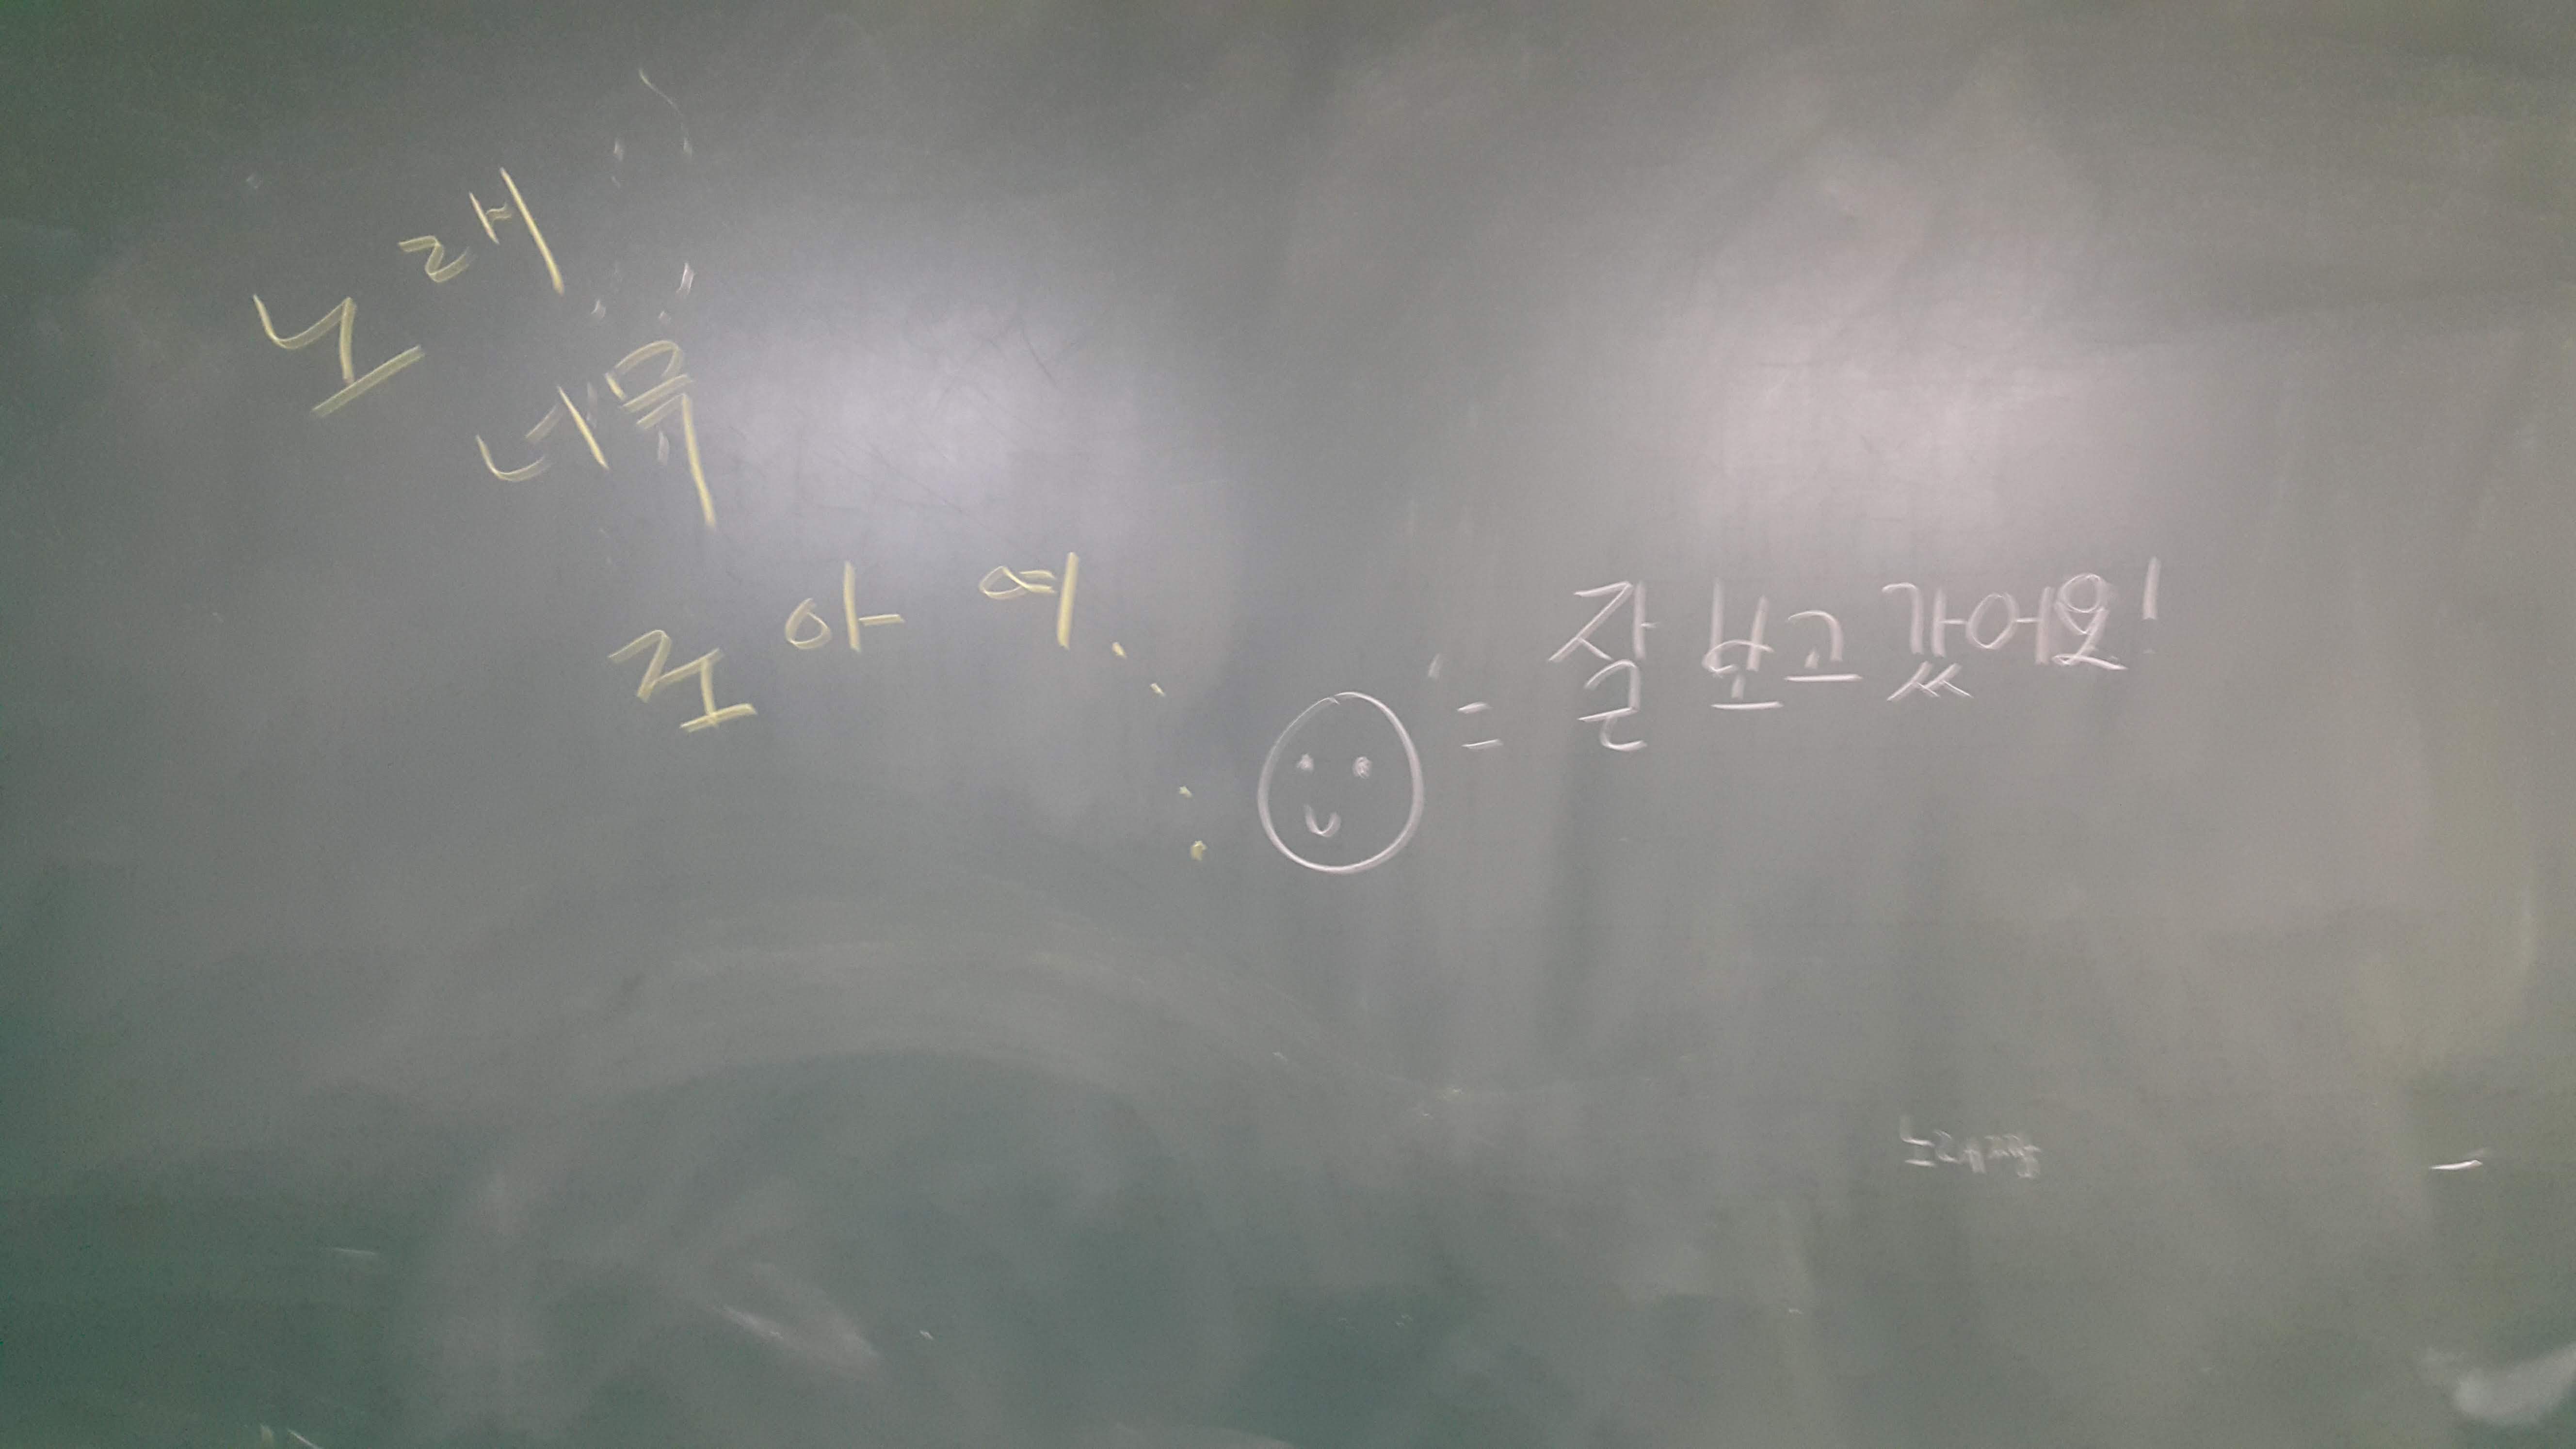 노래
너무
조아여..
잘 보고 갔어요!
노래짱